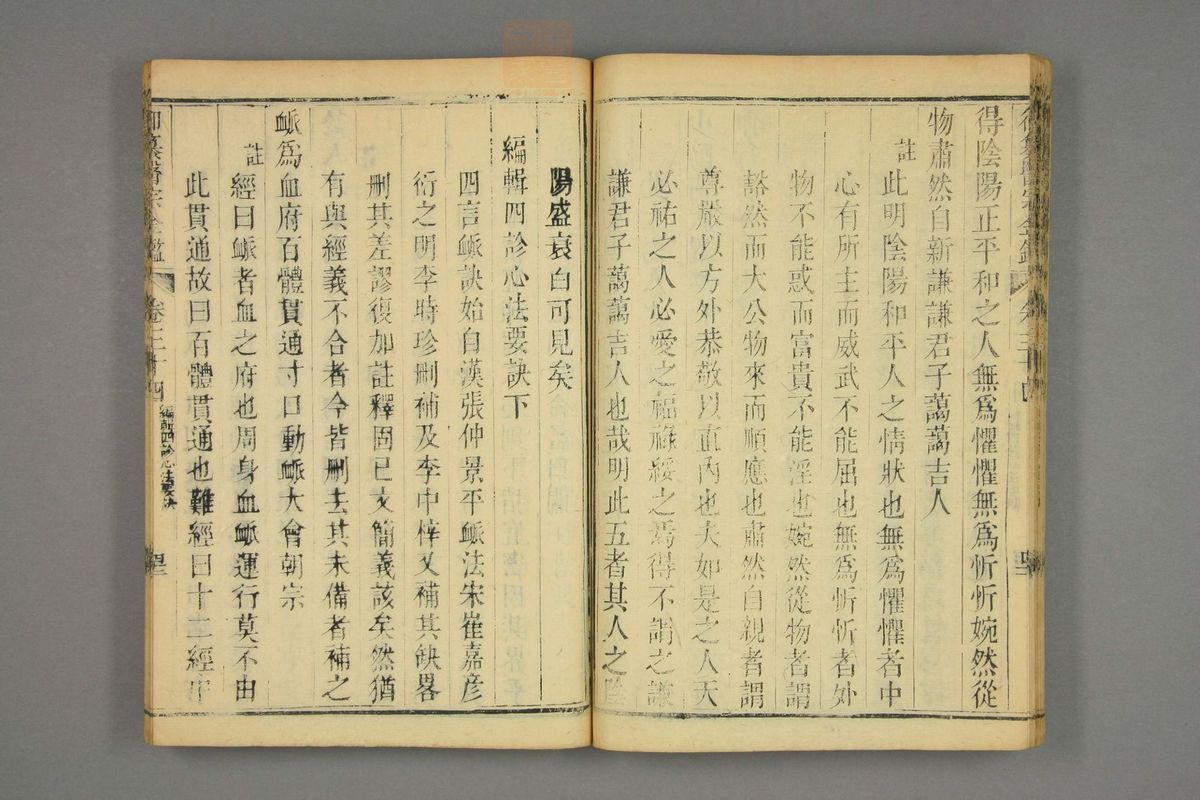 得陰陽正平和之人無爲懼懼無爲忻忻婉然從
物肅然自新謙謙君子藹藹吉人
註
此明陰陽和平人之情狀也無爲懼懼者中
心有所主而威武不能屈也無爲忻忻者外
物不能惑而富貴不能淫也婉然從物者謂
豁然而大公物來而順應也肅然自親者謂
尊嚴以方外恭敬以直內也夫如是之人天
必祐之人必愛之福祿綏之焉得不謂之謙
謙君子藹藹吉人也哉明此五者其人之陰
陽盛衰自可見矣
編輯四診心法要訣下
四言脈訣始自漢張仲景平脈法宋崔嘉彦
衍之明李時珍刪補及李中梓又補其缺畧
刪其差謬復加註釋固已文簡義該矣然猶
有與經義不合者今皆刪去其未備者補之
脈爲血府百體貫通寸口動脈大會朝宗
註
經曰脈者血之府也周身血脈運行莫不由
此貫通故曰百體貫通也難經曰十二經中
御纂醫宗金鑑
卷三十四
編輯四診心法要訣